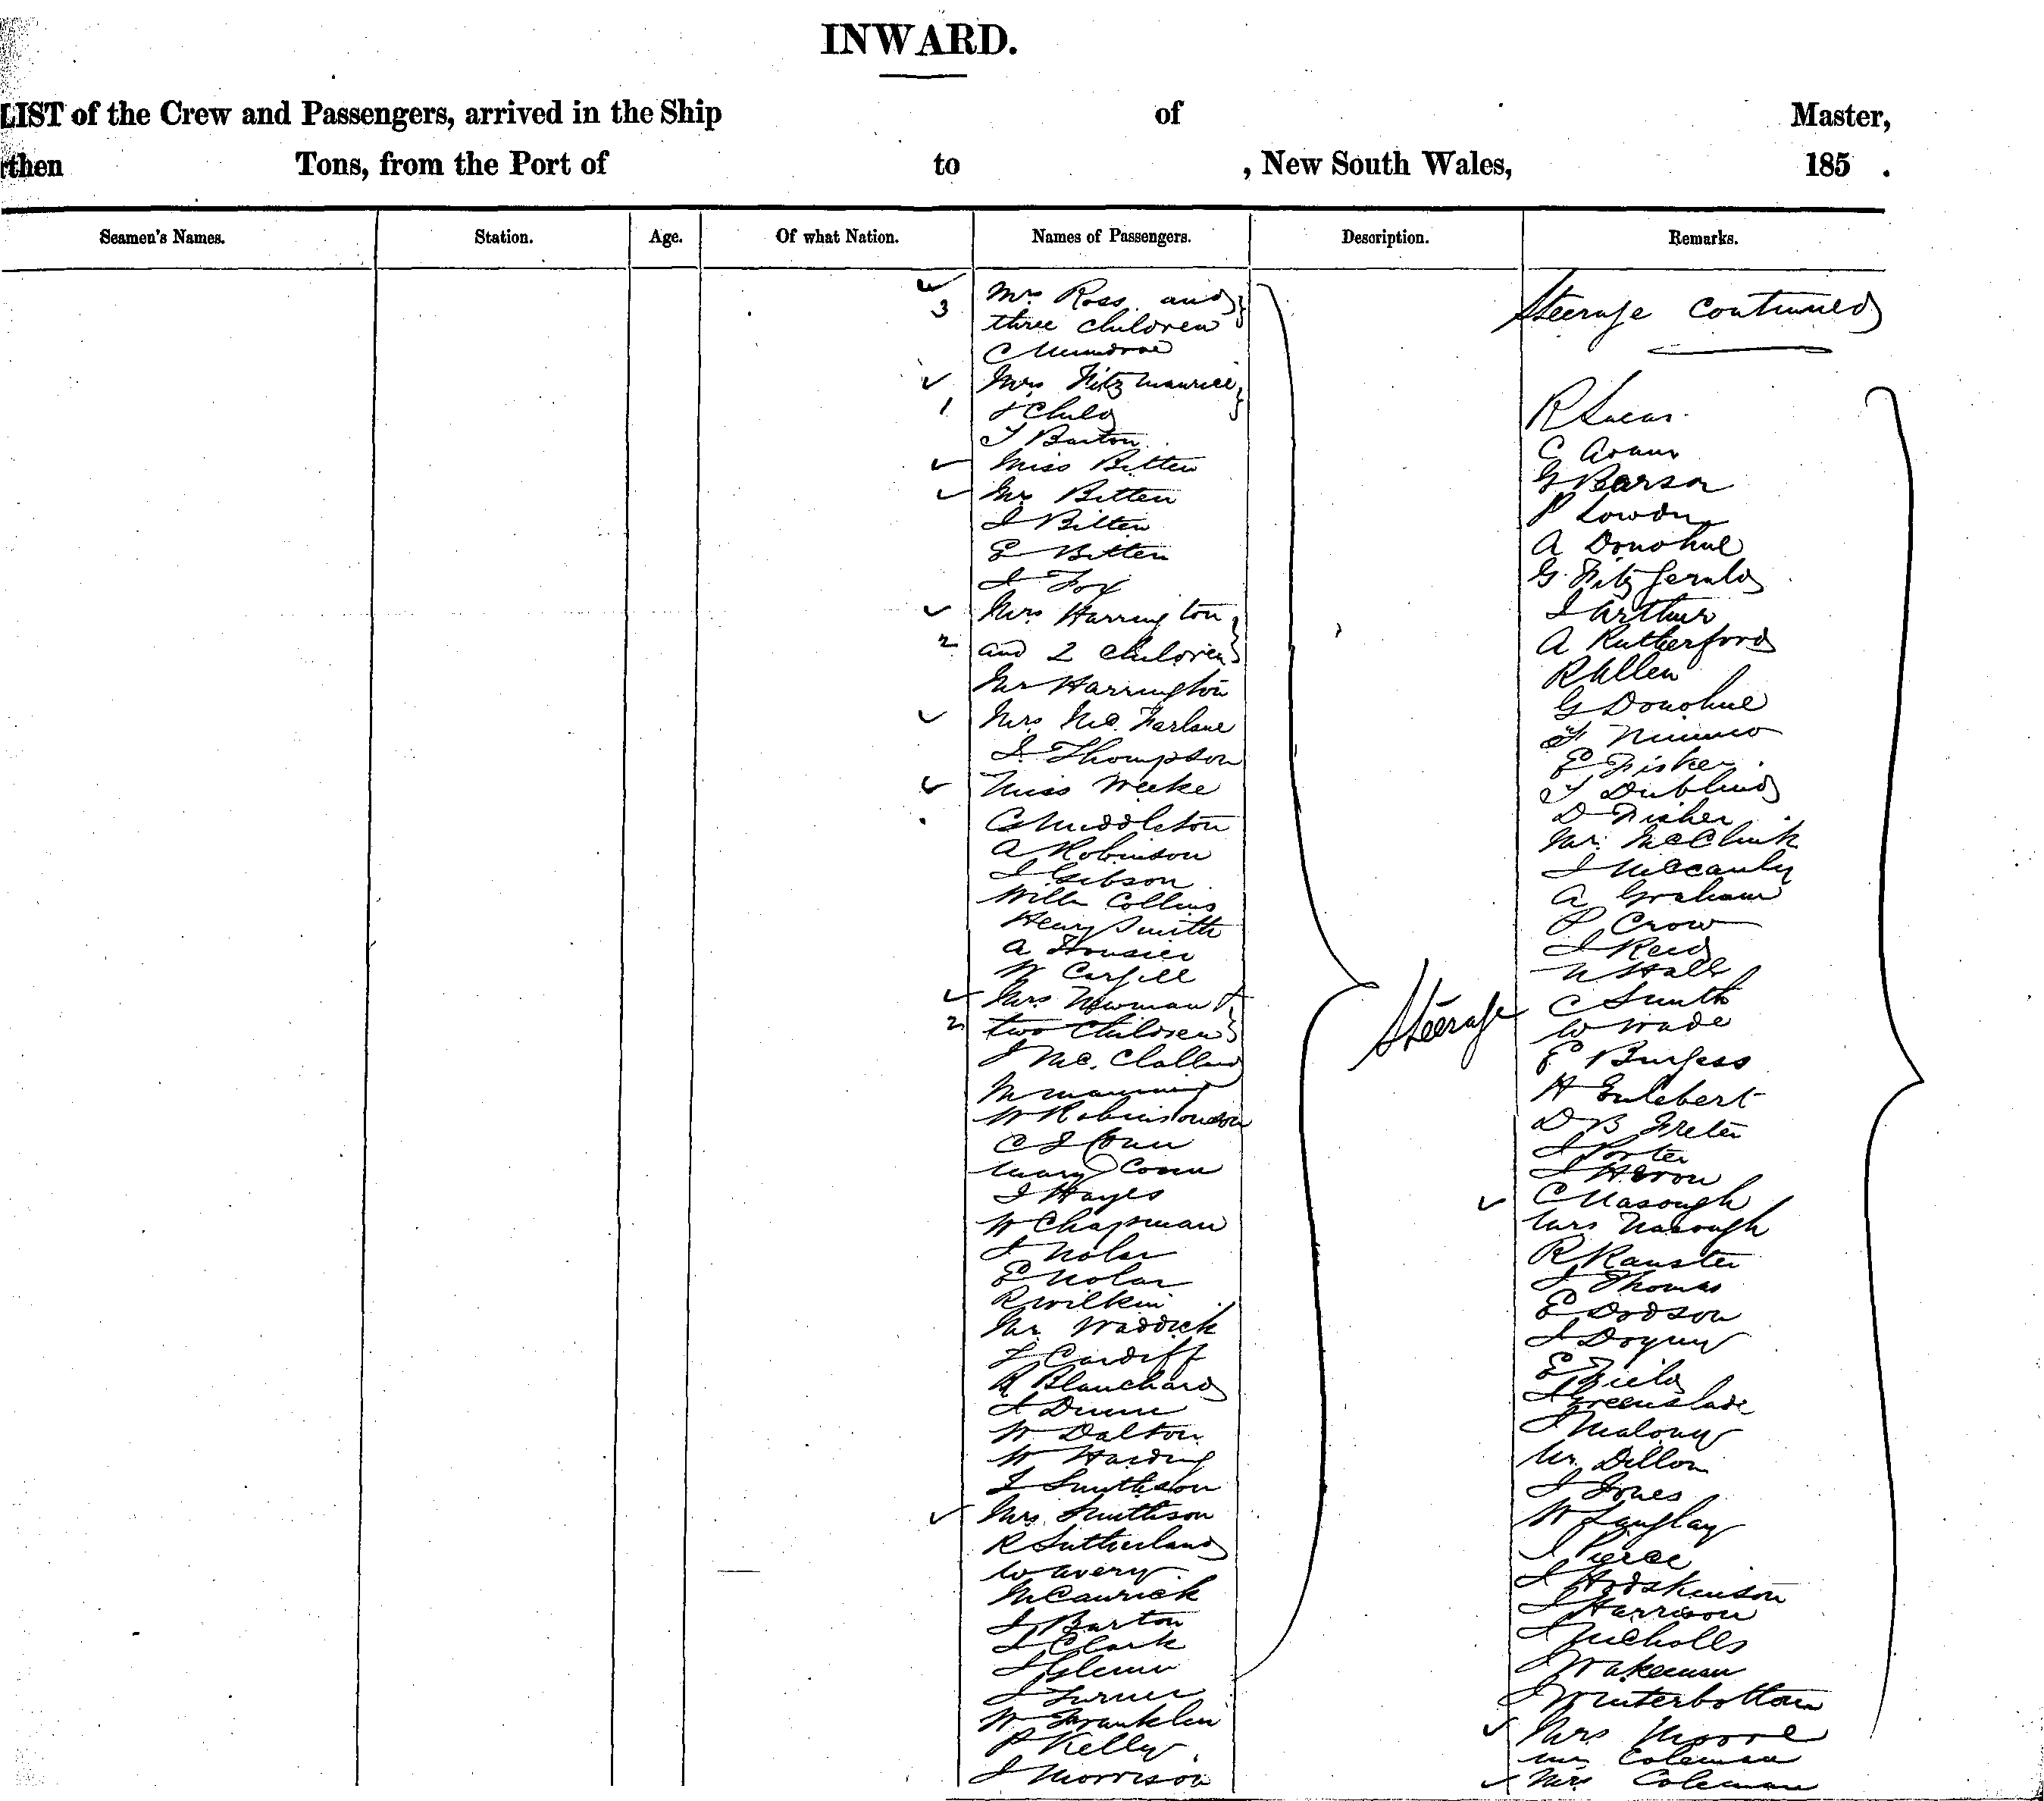 INWARD.
LIST of the Crew and Passengers, arrived in the Ship of Master,
then Tons, from the Port of to , New South Wales, 185 .
Seamen's Names. Station. Age. Of what Nation. Names of Passengers. Description. Remarks.
3 Mrs Ross and
three children
C Mundroe
Mrs Fitzmaurice
1 & Child
T Barton
Miss Bitten
Mrs Bitten
J Bitten
E Bitten
J Fox
Mrs Harrington
2 and 2 children
Mr Harrington
Mrs McFarlane
J Thompson
Miss Weeke
C Middleton
A Robinson
J Gibson
Willm Collins
Henry Smith
A
W Cargill
Mrs Newman &
2 two Children
J McClalland
M Manning
W
C J Conn
Mary Conn
J Hayes
W Chapman
J Nolar
E Nolar
R Wilkin
Mr Waddick
J Cardiff
R Blanchard
J Dunn
W Dalton
W Harding
J Smithson
Mrs Smithson
R Sutherland
W Avery
J Barton
J Clark
J Glenn
J Turner
W Franklin
P Kelly
J Morrison
Steerage
Steerage continued
R Lucas
C
G Pearson
P
A Donohue
G Fitzgerald
J Arthur
A Rutherford
R Allen
G Donohue
F Nimmo
E Fisher
T
D Fisher
Mr
J
A Graham
P Crow
J Reid
N Hall
C Smith
W Wade
E Burgess
H
D B
J Porter
J Heron
C Nasough
Mrs Nasough
R
J Thomas
E Dodson
J
E Field
J Greenslade
J Malony
Mr Dillon
J Jones
W Langlay
J Pierce
J Hodskinson
J Harrison
J Nicholls
J Wakeman
J Winterbottom
Mrs Moore
Mr Coleman
Mrs Coleman